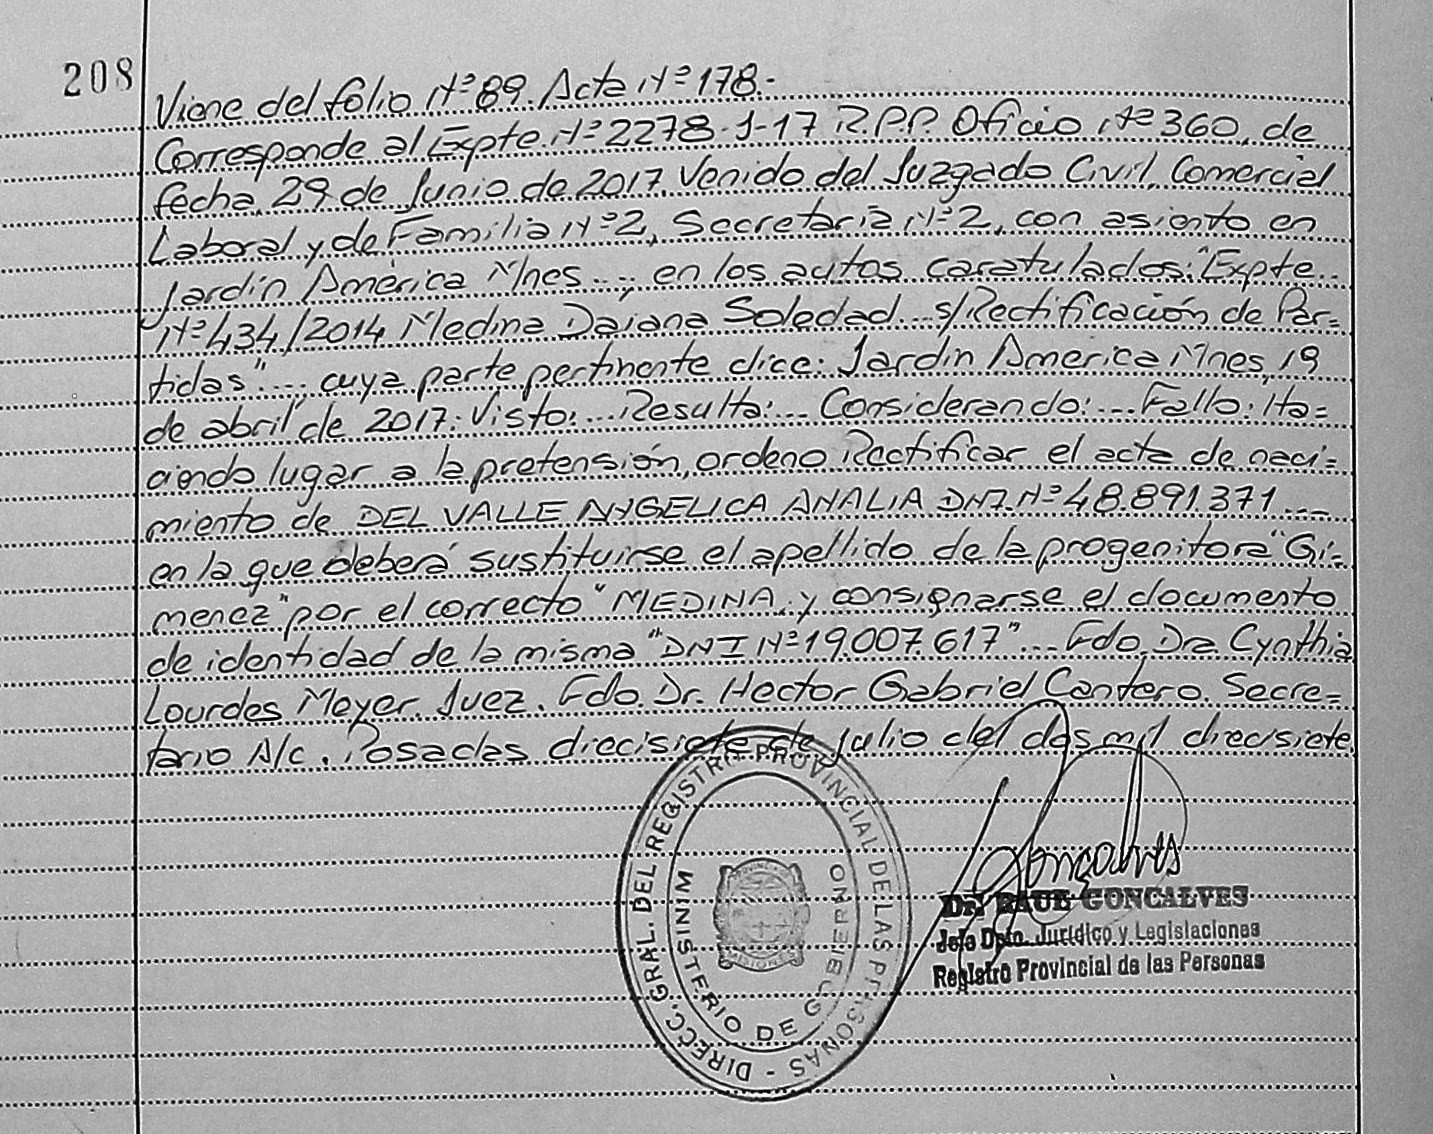 208
Viene del folio Nº 89. Acta Nº 178.-
Corresponde al Expte. Nº 2278-1-17 R.P.P. Oficio Nº 360, de
fecha 29 de Junio de 2017. Venido del Juzgado Civil, Comercial
Laboral y de Familia Nº 2, Secretaria Nº 2, con asiento en
Jardín América Mnes..., en los autos caratulados: "Expte..
Nº 434/2014 Medina Daiana Soledad... s/Rectificación de Par=
tidas".... cuya parte pertinente dice: Jardín America Mnes, 19
de abril de 2017: Visto:... Resulta:... Considerando:... Fallo: Ha=
ciendo lugar a la pretensión, ordeno Rectificar el acta de naci=
miento de DEL VALLE ANGELICA ANALIA DNI. Nº 48.891.371....
en la que deberá sustituirse el apellido de la progenitora "Gi=
menez" por el correcto "MEDINA, y consignarse el documento
de identidad de la misma "DNI Nº 19.007.617"... Fdo. Dra Cynthia
Lourdes Meyer. Juez. Fdo. Dr. Hector Gabriel Cantero. Secre=
tario A/c. Posadas diecisiete de julio del dos mil diecisiete.
DIRECC. GRAL. DEL REGISTRO PROVINCIAL DE LAS PERSONAS -
MINISTERIO DE GOBIERNO
MISIONES
Gonçalves
Dr. RAUL GONCALVES
Jefe Dpto. Jurídico y Legislaciones
Registro Provincial de las Personas